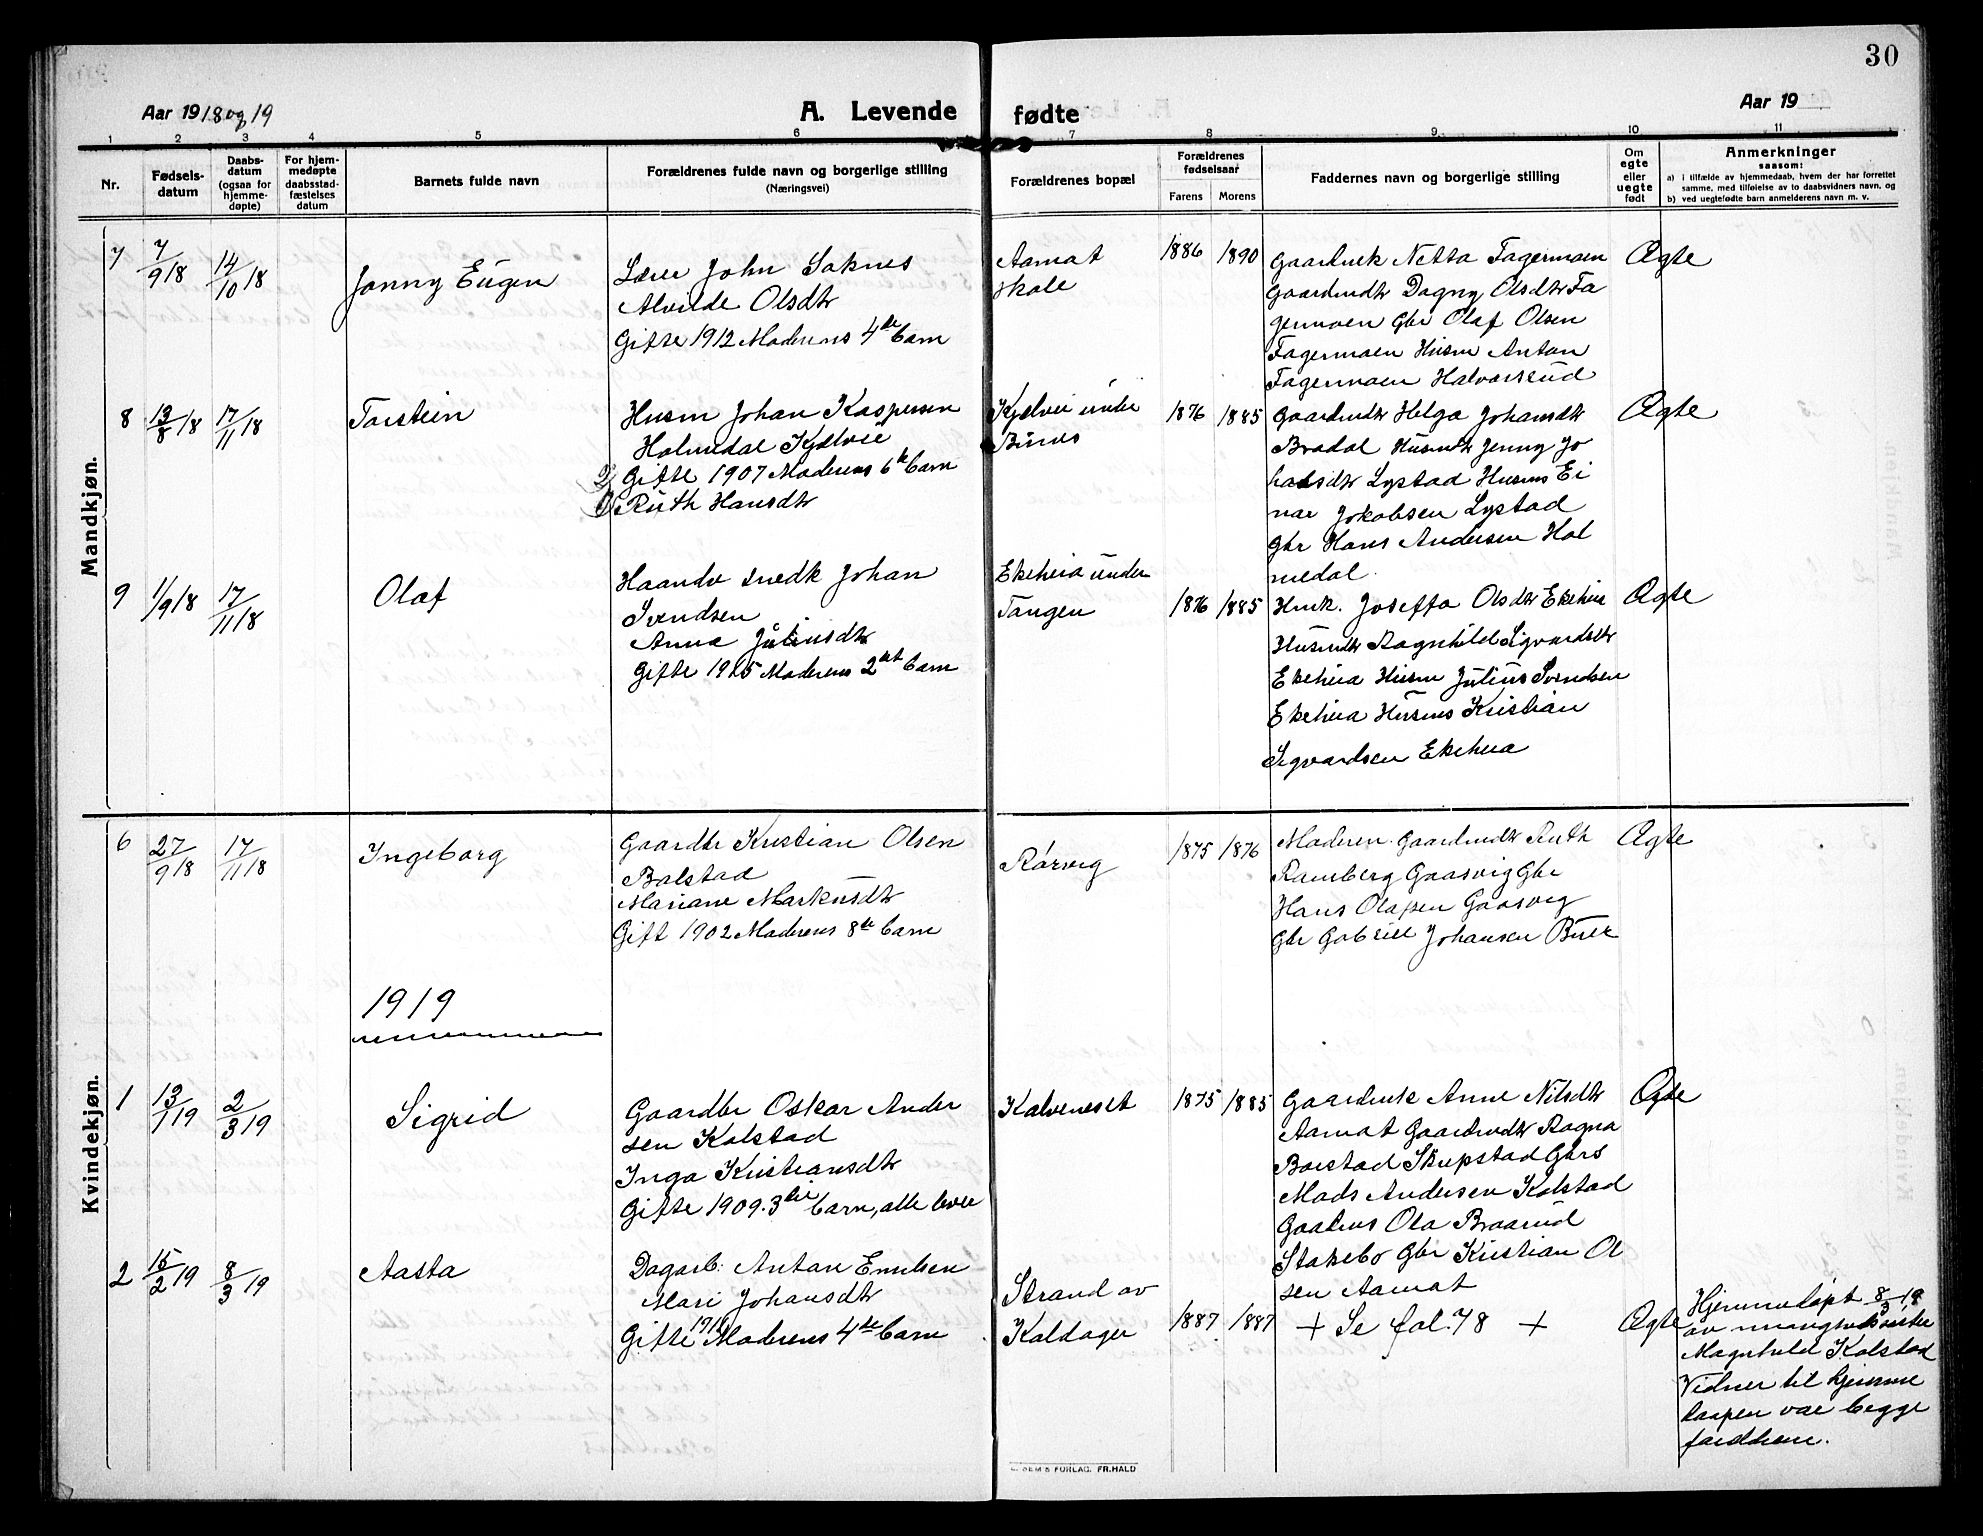 30
Aar 1918 og 19
A. Levende
fødte
Aar 19
1 2 3 4 5 6 7 8 9 10 11
Nr.
Fødsels-
datum
Daabs-
datum
(ogsaa for
hjemme-
døpte)
For hjem-
medøpte
daabsstad-
fæstelses
datum
Barnets fulde navn
Forældrenes fulde navn og borgerlige stilling
(Næringsvei)
Forældrenes bopæl
Forældrenes
fødselsaar
Farens
Morens
Faddernes navn og borgerlige stilling
Om
egte
eller
uegte
født
Anmerkninger
saasom:
a) i tilfælde av hjemmedaab, hvem der har forrettet
samme, med tilføielse av to daabsvidners navn, og
b) ved uegtefødte barn anmelderens navn m. v.
Mandkjøn.
7
7/9 18
14/10 18
Jonny Eugen
Lærer John Saknes
Alvilde Olsdtr
Gifte 1912 Moderens 4de barn
Aamot
skole
1886
1890
Gaardmk Netta Fagermoen
Gaardmdtr Dagny Olsdtr Fa
germoen Gbr Olaf Olsen
Fagermoen Husm Anton
Fagermoen Halvorsrud
Ægte
8
13/8 18
17/11 18
Torstein
Husm Johan Kaspersen
Holmedal Kjølvei
2) Gifte 1907 Moderens 6te barn
1) Ruth Hansdtr
Kjølvei under
1876
1885
Gaardmdtr Helga Johansdtr
Bradal Husmdtr Jenny Jo
hansdtr Lystad Husms Ei
nar Jokobsen Lystad
Gbr Hans Andersen Hol
medal.
Ægte
9
1/9 18
17/11 18
Olaf
Haandv snedk Johan
Svendsen
Anna Juliusdtr
Gifte 1915 Moderens 2det barn
Ekeheia under
Tangen
1876
1885
Hmk. Joseffa Olsdtr Ekeheia
Husmdtr Ragnhild Sigvardsdtr
Ekeheia Husm Julius Svendsen
Ekeheia Husms Kristian
Sigvardsen Ekeheia
Ægte
Kvindekjøn.
6
27/9 18
17/11 18
Ingeborg
Gaardbr Kristian Olsen
Bolstad
Mariane Markusdtr
Gift 1902 Moderens 8de barn
Rørvig
1875
1876
Moderen. Gaardmdtr Ruth
Ramberg Gaasvig Gbr
Hans Olafsen Gaasvig
Gbr Gabriel Johansen
Ægte
1919
1
13/1 19
2/3 19
Sigrid
Gaardbr Oskar Ander
sen Kolstad
Inga Kristiansdtr
Gifte 1909. 3die barn, alle lever
Kalveneset
1875
1885
Gaardmk Anne Nilsdtr
Aamot Gaardmdtr Ragna
Borstad Skupstad Gbrs
Mads Andersen Kolstad
Gaardms Ola Braarud
Stakebo Gbr Kristian Ol
sen Aamot
Ægte
2
15/2 19
8/3 19
Aasta
Dagarb. Anton Emilsen
Mari Johansdtr
Gifte Moderens 4de barn
Strand av
Koldager
1887
1887
+ Se fol. 78 +
Ægte
Hjemmedøpt 8/3 19
av
Magnhild Kolstad
Vidner til hjemme
daapen var begge
forældrene.
FORLAG. FR.HALD